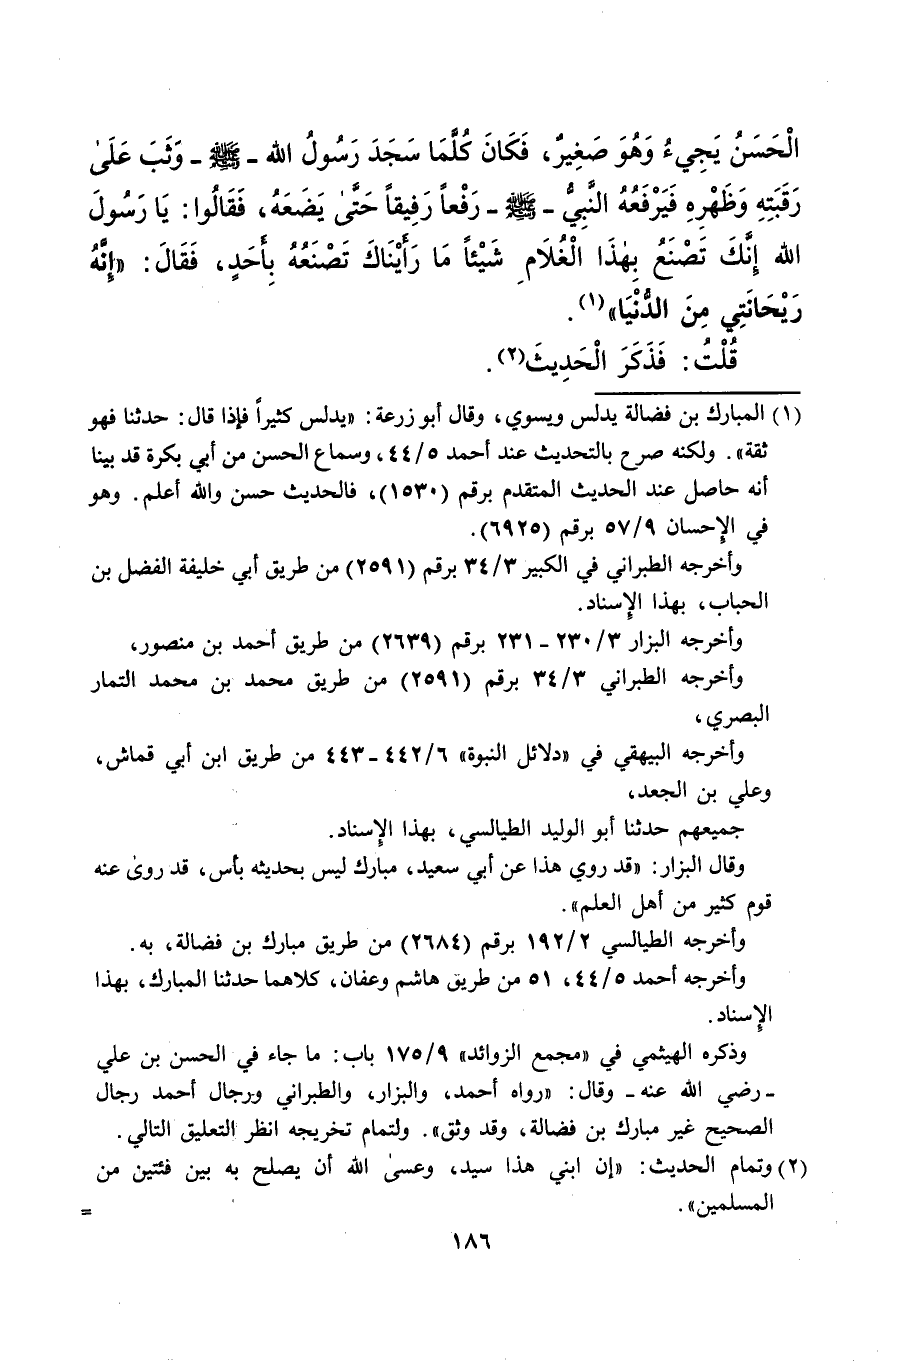 الْحَسَنُ يَجِيءُ وَهُوَ صَغِيرٌ، فَكَانَ كُلَّمَا سَجَدَ رَسُولُ الله ـ ﷺ ـ وَثَبَ عَلَىٰ
رَقَبَتِهِ وَظَهْرِهِ فَيَرْفَعُهُ النَّبِيُّ ـ ﷺ ـ رَفْعاً رَفِيقاً حَتَّىٰ يَضَعَهُ، فَقَالُوا: يَا رَسُولَ
الله إِنَّكَ تَصْنَعُ بِهٰذَا الْغُلَامِ شَيْئاً مَا رَأَيْنَاكَ تَصْنَعُهُ بِأَحَدٍ، فَقَالَ: «إِنَّهُ
رَيْحَانَتِي مِنَ الدُّنْيَا»(١).
قُلْتُ: فَذَكَرَ الْحَدِيثَ(٢).
(١) المبارك بن فضالة يدلس ويسوي، وقال أبو زرعة: «يدلس كثيراً فإذا قال: حدثنا فهو
ثقة». ولكنه صرح بالتحديث عند أحمد ٤٤/٥، وسماع الحسن من أبي بكرة قد بينا
أنه حاصل عند الحديث المتقدم برقم (١٥٣٠)، فالحديث حسن والله أعلم. وهو
في الإحسان ٥٧/٩ برقم (٦٩٢٥).
وأخرجه الطبراني في الكبير ٣٤/٣ برقم (٢٥٩١) من طريق أبي خليفة الفضل بن
الحباب، بهذا الإسناد.
وأخرجه البزار ٢٣٠/٣ ـ ٢٣١ برقم (٢٦٣٩) من طريق أحمد بن منصور،
وأخرجه الطبراني ٣٤/٣ برقم (٢٥٩١) من طريق محمد بن محمد التمار
البصري،
وأخرجه البيهقي في «دلائل النبوة» ٤٤٢/٦ ـ ٤٤٣ من طريق ابن أبي قماش،
وعلي بن الجعد،
جميعهم حدثنا أبو الوليد الطيالسي، بهذا الإسناد.
وقال البزار: «قد روي هذا عن أبي سعيد، مبارك ليس بحديثه بأس، قد روىٰ عنه
قوم كثير من أهل العلم».
وأخرجه الطيالسي ١٩٢/٢ برقم (٢٦٨٤) من طريق مبارك بن فضالة، به.
وأخرجه أحمد ٤٤/٥، ٥١ من طريق هاشم وعفان، كلاهما حدثنا المبارك، بهذا
الإسناد.
وذكره الهيثمي في «مجمع الزوائد» ١٧٥/٩ باب: ما جاء في الحسن بن علي
ـ رضي الله عنه ـ وقال: «رواه أحمد، والبزار، والطبراني ورجال أحمد رجال
الصحيح غير مبارك بن فضالة، وقد وثق». ولتمام تخريجه انظر التعليق التالي.
(٢) وتمام الحديث: «إن ابني هذا سيد، وعسىٰ الله أن يصلح به بين فئتين من
المسلمين». =
١٨٦